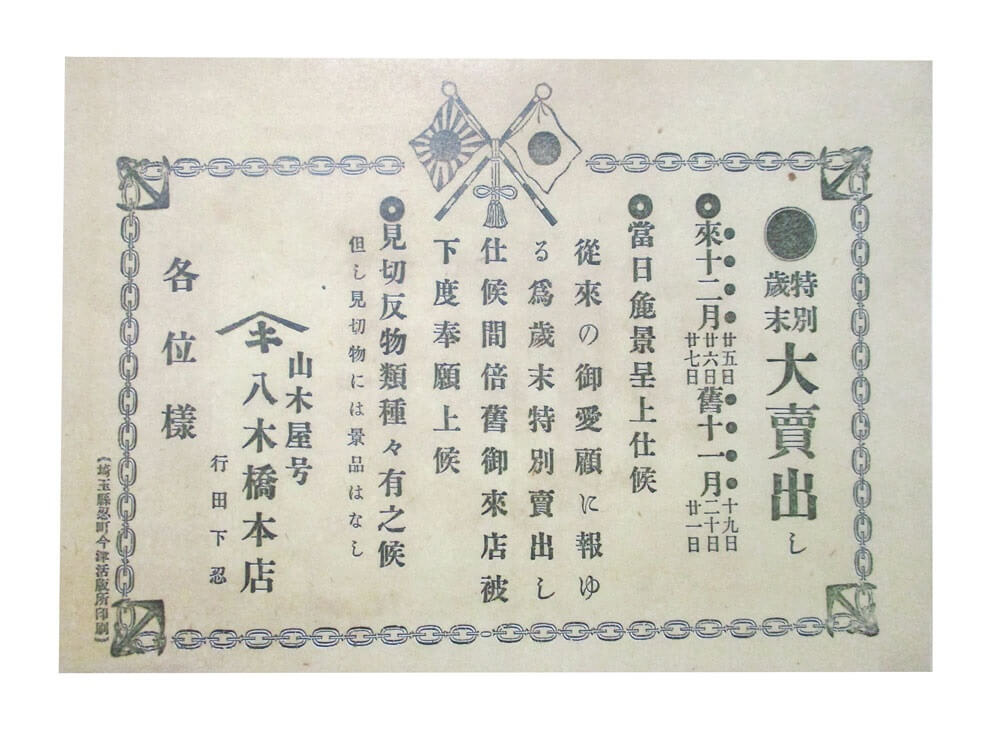 特別
歳末
大賣出し
來十二月廿五日廿六日廿七日舊十一月十九日二十日廿一日
當日麁景呈上仕候
從來の御愛顧に報ゆ
る爲歳末特別賣出し
仕候間倍舊御來店被
下度奉願上候
見切反物類種々有之候
但し見切物には景品はなし
山木屋号
キ八木橋本店
行田下忍
各位樣
(埼玉縣忍町今津活版所印刷)